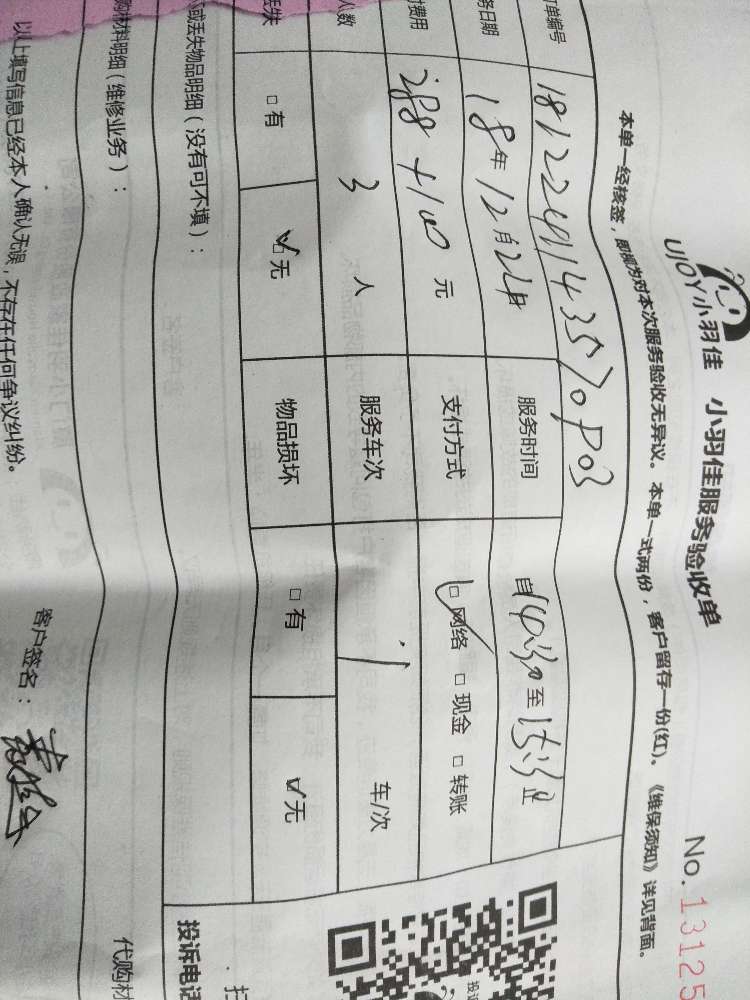 UJOY小羽佳 小羽佳服务验收单
No.13125
本单一经核签，即视为对本次服务验收无异议。本单一式两份，客户留存一份(红)。《维保须知》详见背面。
订单编号
务日期 18年12月24日 服务时间 自14:30至15:30止
费用 288+100元 支付方式 ☑网络 □现金 □转账
人数 3人 服务车次 1 车/次
丢失 □有 ☑无 物品损坏 □有 ☑无
或丢失物品明细（没有可不填）：
购材料明细（维修业务）： 代购材
以上填写信息已经本人确认无误，不存在任何争议纠纷。
客户签名：
投诉电话
扫